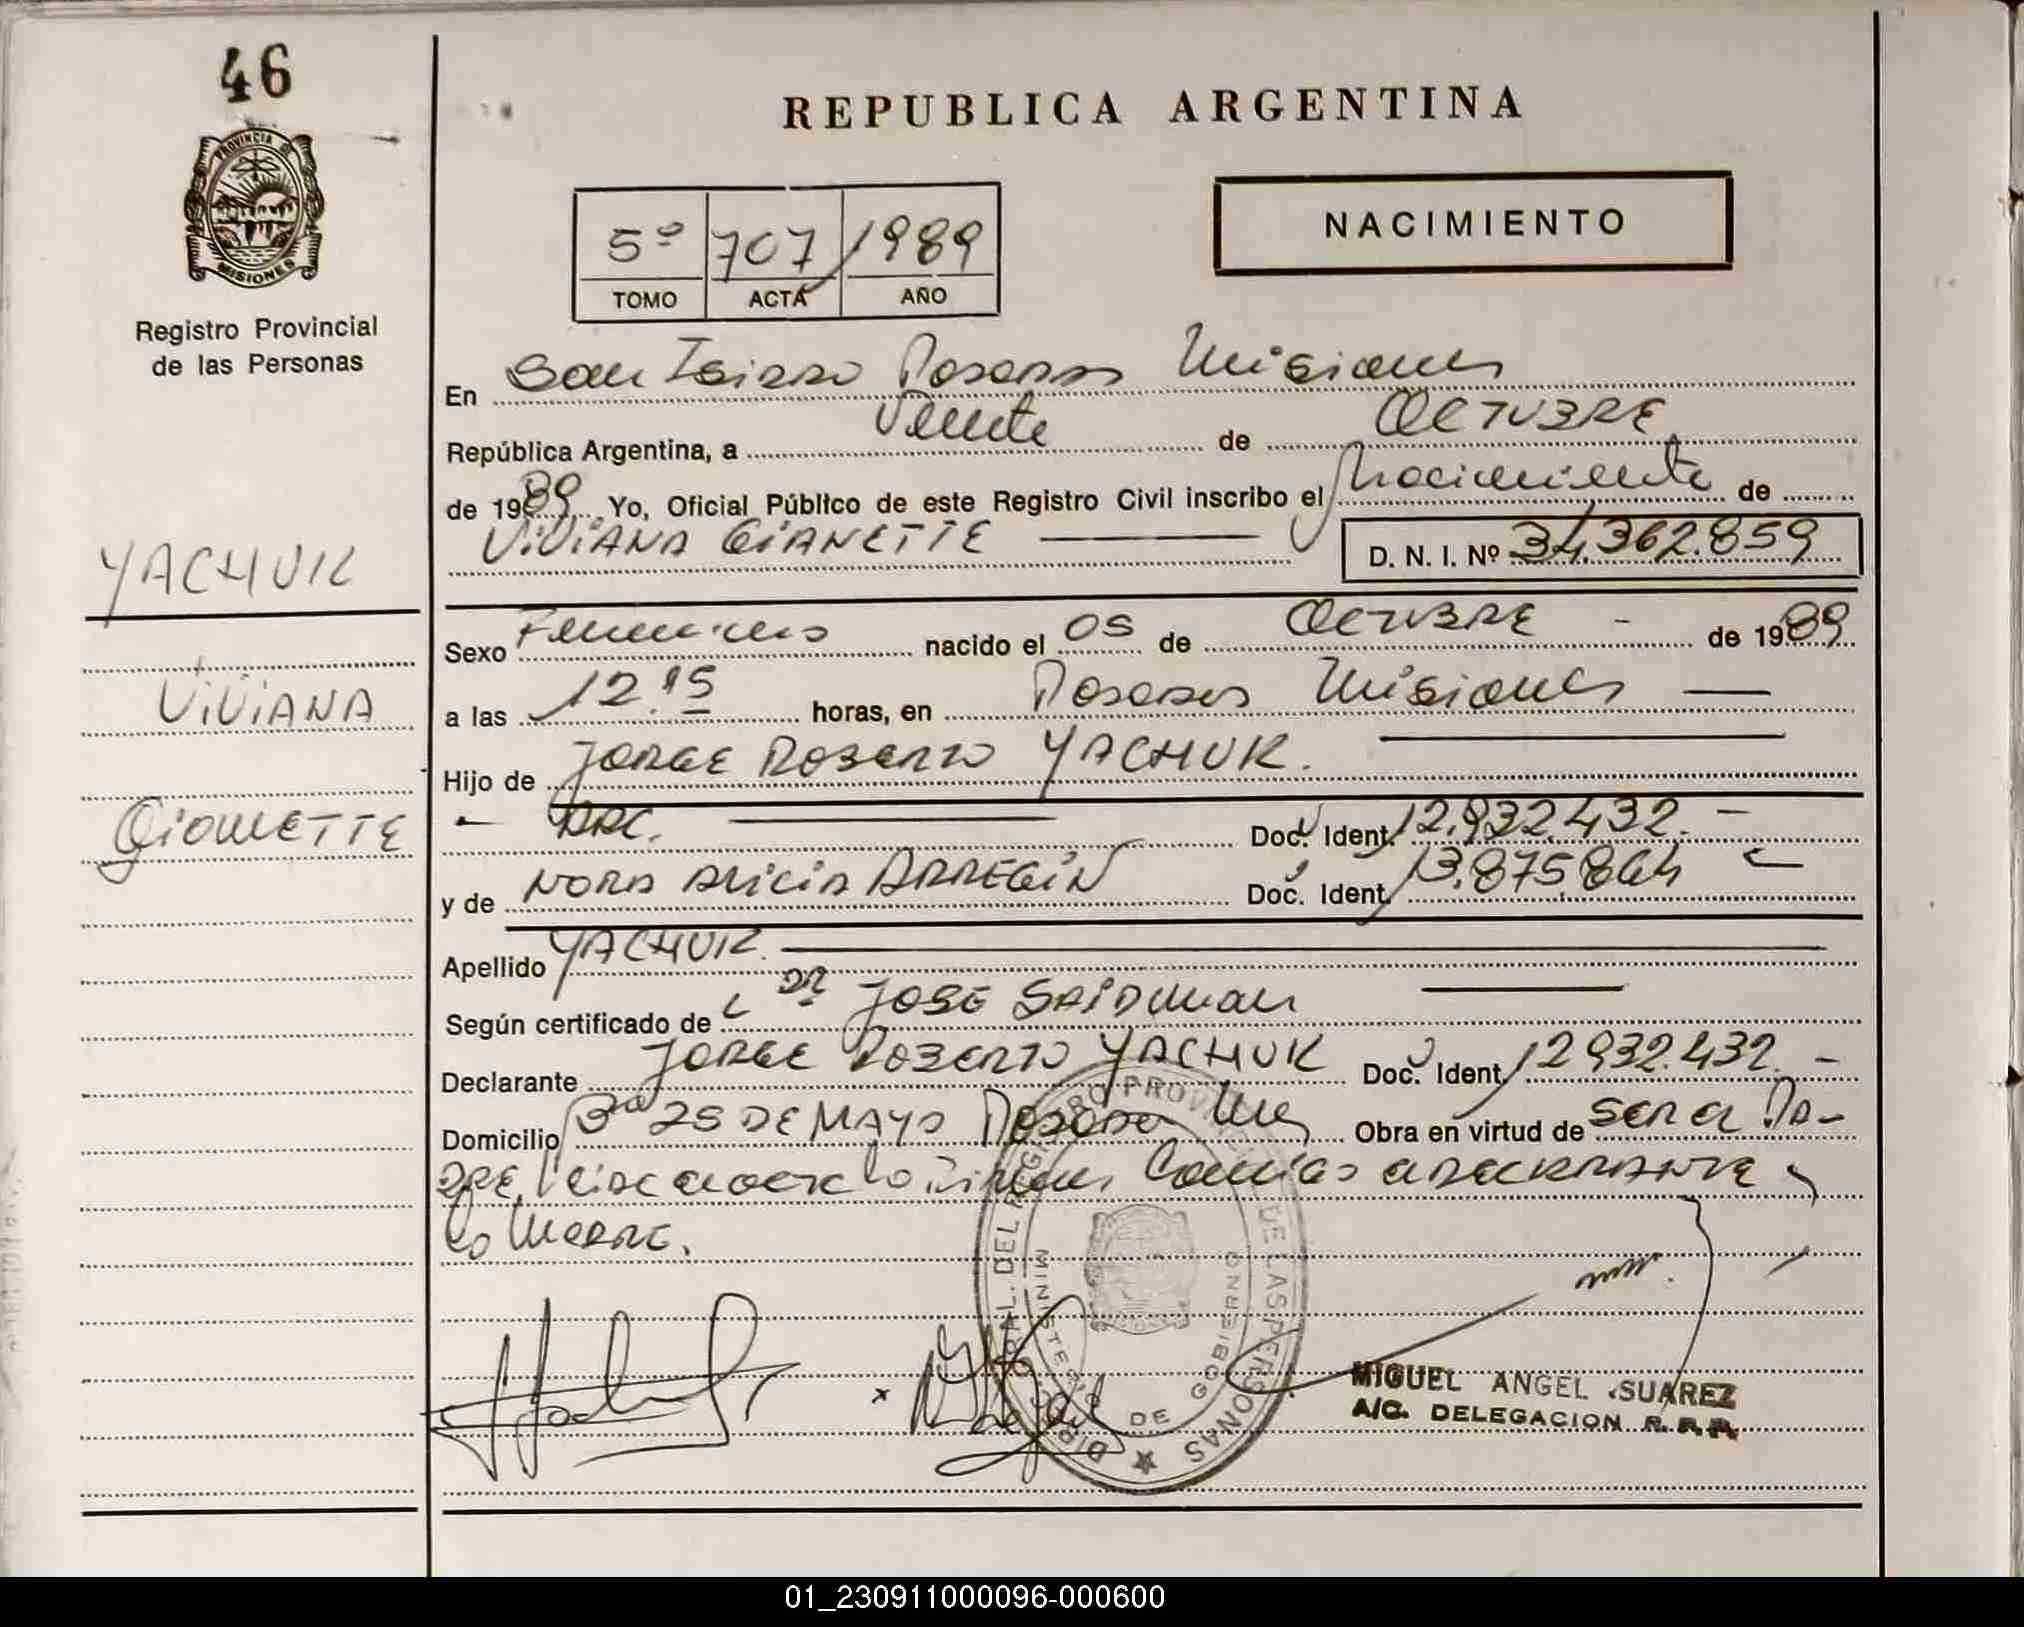 46
REPUBLICA ARGENTINA
PROVINCIA DE
MISIONES
Registro Provincial
de las Personas
5º 707 1989
TOMO ACTA AÑO
NACIMIENTO
En San Isidro Posadas Misiones
República Argentina, a Veinte de OCTUBRE
de 1989. Yo, Oficial Público de este Registro Civil inscribo el Nacimiento de
VIVIANA GIANETTE D. N. I. Nº 34.362.859
YACHUK
Sexo Femenino nacido el 05 de OCTUBRE - de 1989
VIVIANA
a las 12.15 horas, en Posadas Misiones
Hijo de JORGE ROBERTO YACHUK.
Gianette
ARG. Doc. Ident. 12.932.432.-
y de NORA ALICIA ARREGIN Doc. Ident. 13.875.864
Apellido YACHUK.
Según certificado de DR JOSE SAIDMAN
Declarante JORGE ROBERTO YACHUK Doc. Ident. 12932.432.-
Domicilio Bº 25 DE MAYO Posadas Mnes Obra en virtud de SER el PA-
DRE, firman Conmigo el DECLARANTE y
la MADRE.
MIGUEL ANGEL SUAREZ
A/C. DELEGACION R.P.P.
DIR. GRAL. DEL REGISTRO PROVINCIAL DE LAS PERSONAS
MINISTERIO DE GOBIERNO
01_230911000096-000600